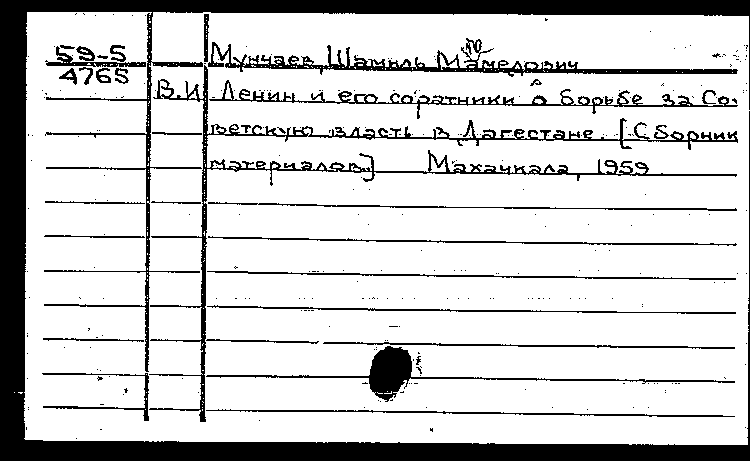 59-5 Мунчаев, Шамиль Мамедович
4765
В.И. Ленин и его соратники о борьбе за Со-
ветскую власть в Дагестане. [Сборник
материалов] Махачкала, 1959